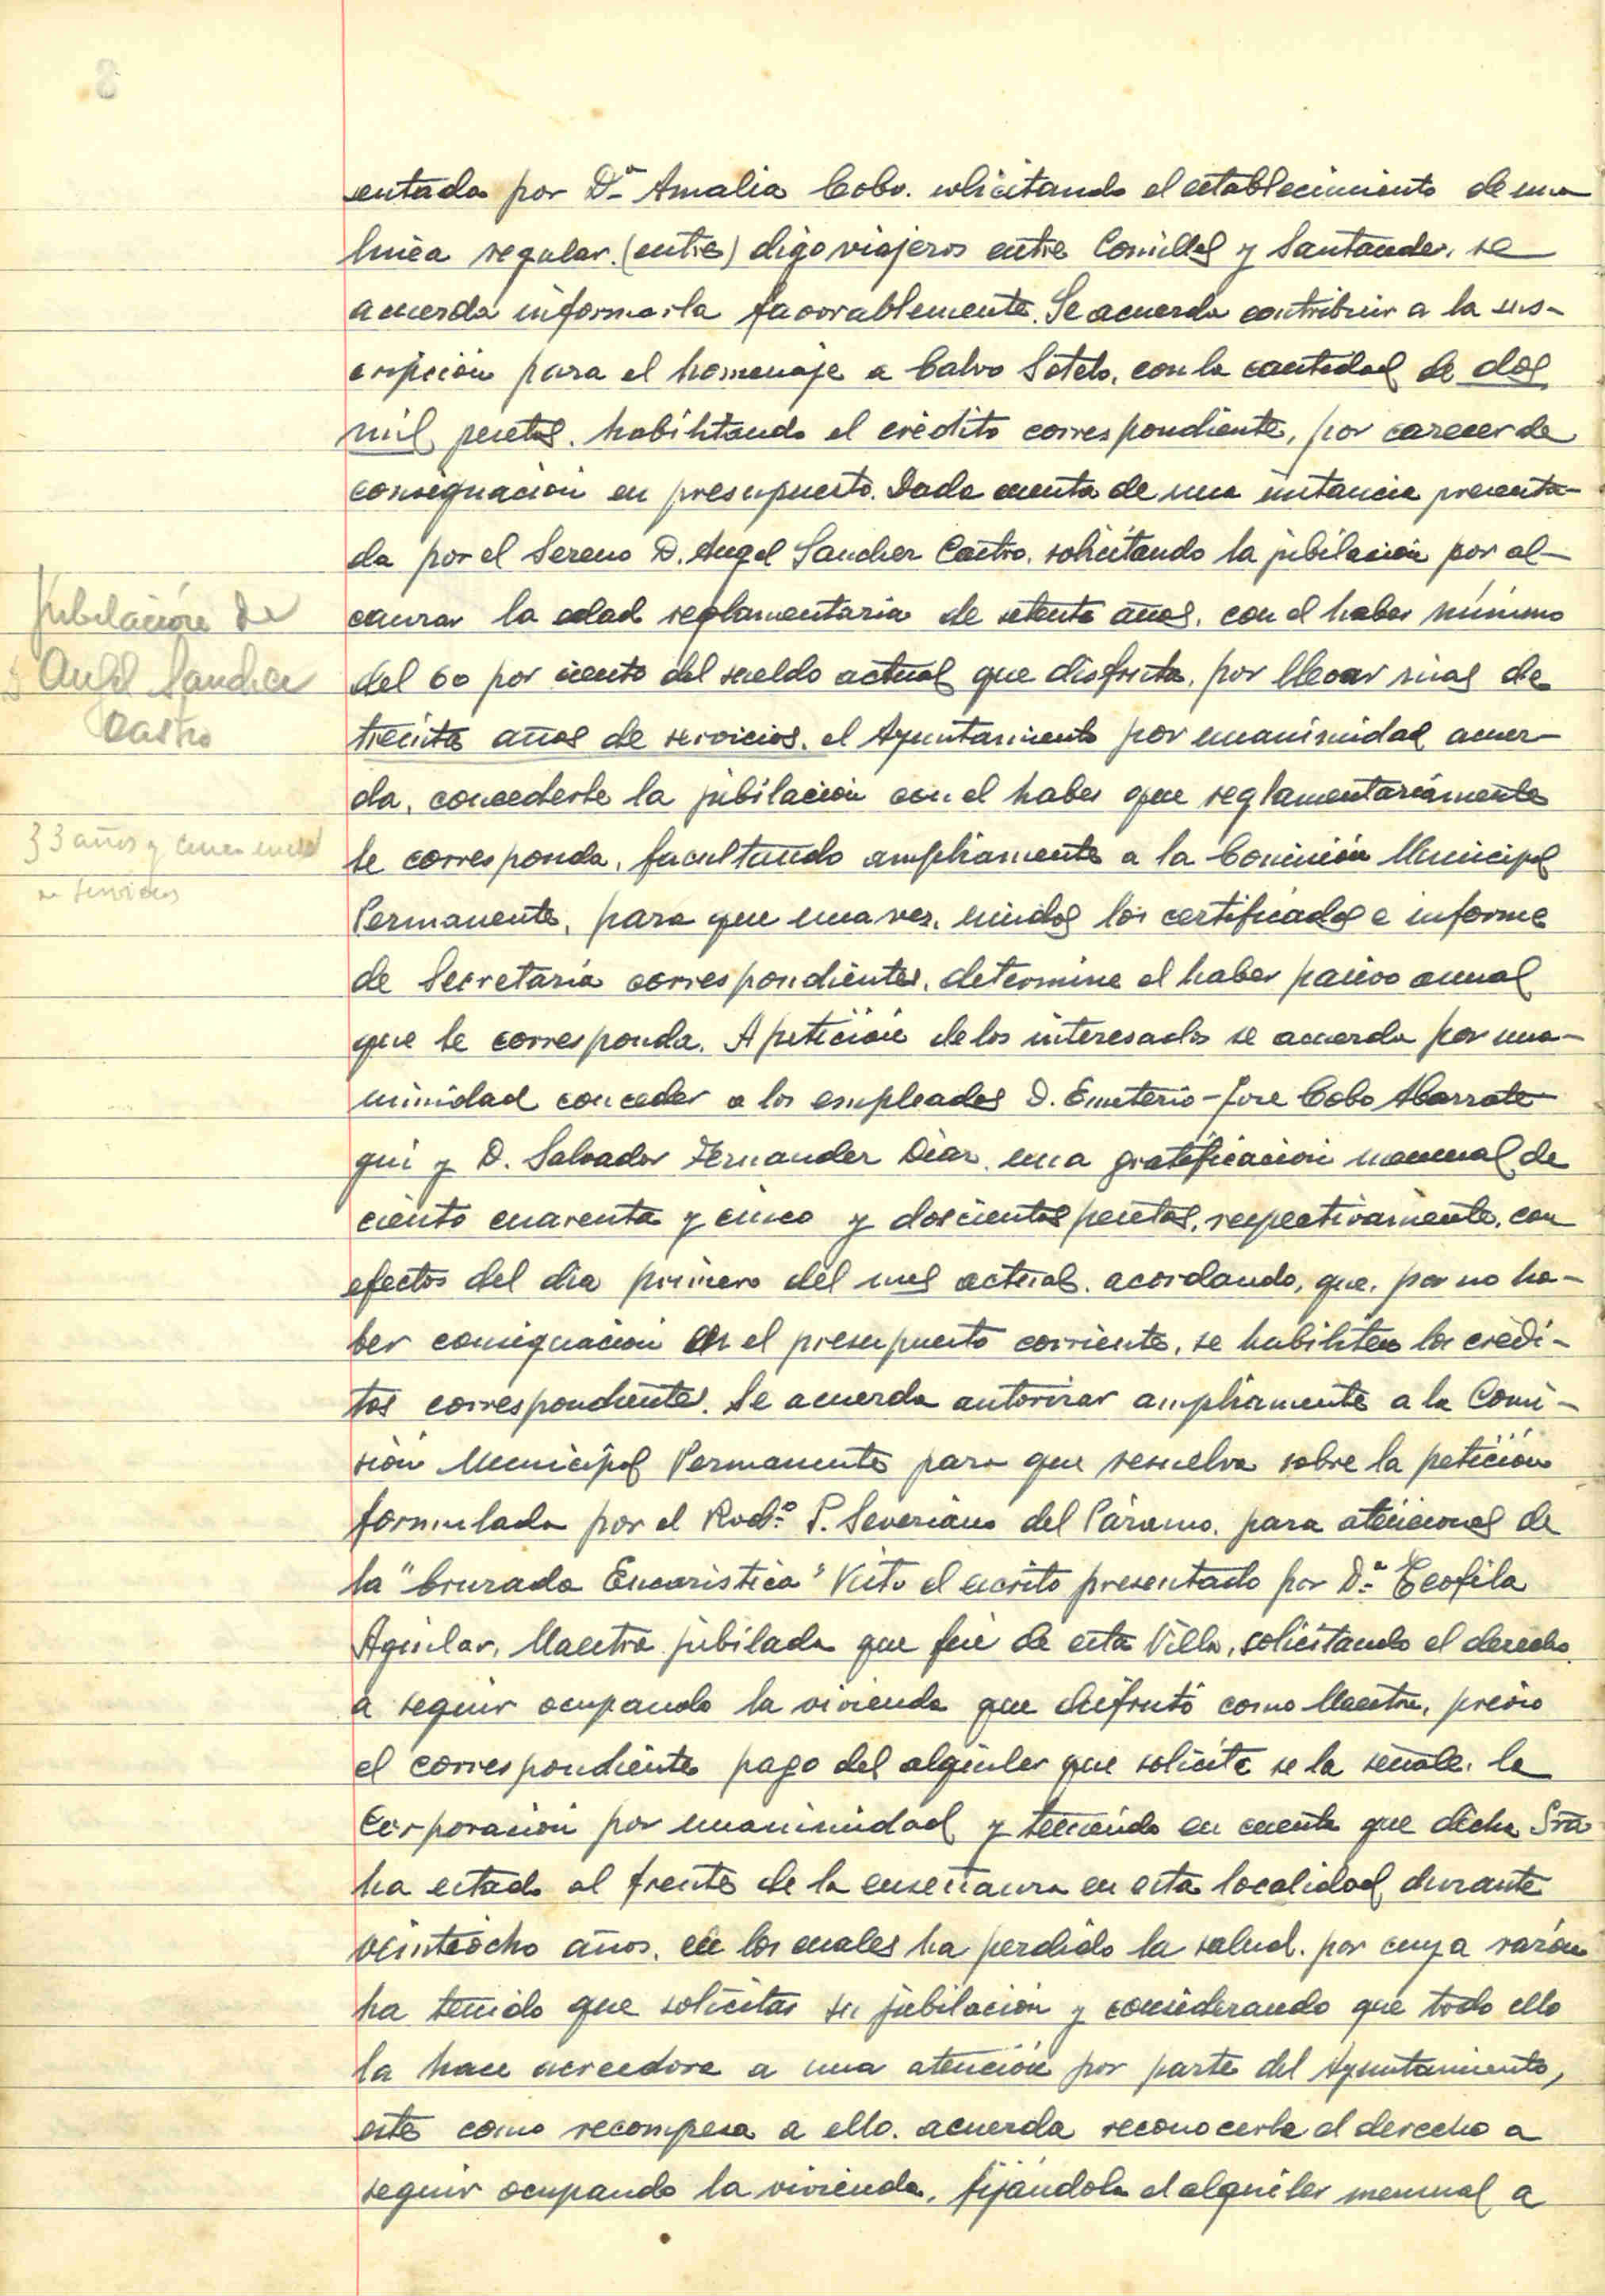 sentada por Dª Amalia Cobo. solicitando el establecimiento de una
linea regular. (entre) digo viajeros entre Comillas y Santander, se
acuerda informarla favorablemente. Se acuerda contribuir a la sus-
cripción para el homenaje a Calvo Sotelo, con la cantidad de dos
mil pesetas. habilitando el crédito correspondiente, por carecer de
consignación en presupuesto. Dada cuenta de una instancia presenta-
da por el Sereno D. Angel Sanchez Castro, solicitando la jubilación por al-
Jubilación de
canzar la edad reglamentaria de setenta años, con el haber mínimo
D Angel Sanchez
del 60 por ciento del sueldo actual que disfruta, por llevar más de
Castro
treinta años de servicios. el Ayuntamiento por unanimidad acuer-
da, concederle la jubilación con el haber que reglamentariamente
33 años y cinco meses
le corresponda, facultando ampliamente a la Comisión Municipal
de servicios
Permanente, para que una vez, unidos los certificados e informe
de Secretaría correspondientes, determine el haber pasivo anual
que le corresponda. A petición de los interesados se acuerda por una-
nimidad conceder a los empleados D. Emeterio-Jose Cobo Abarrate-
gui y D. Salvador Fernandez Diaz, una gratificación mensual de
ciento cuarenta y cinco y doscientas pesetas, respectivamente, con
efectos del dia primero del mes actual. acordando, que, por no ha-
ber consignación en el presupuesto corriente, se habiliten los crédi-
tos correspondientes. Se acuerda autorizar ampliamente a la Comi-
sión Municipal Permanente para que resuelva sobre la petición
formulada por el Rvdº P. Severiano del Páramo, para atenciones de
la "Cruzada Eucarística" Visto el escrito presentado por Dª Teofila
Aguilar, Maestra jubilada que fué de esta Villa, solicitando el derecho
a seguir ocupando la vivienda que disfrutó como Maestra, previo
el correspondiente pago del alquiler que solicita se la señale, la
Corporación por unanimidad y teniendo en cuenta que dicha Srª
ha estado al frente de la enseñanza en esta localidad durante
veintiocho años, en los cuales ha perdido la salud, por cuya razón
ha tenido que solicitar su jubilación y considerando que todo ello
la hace acreedora a una atención por parte del Ayuntamiento,
este como recompesa a ello, acuerda reconocerla el derecho a
seguir ocupando la vivienda, fijándola el alquiler mensual a